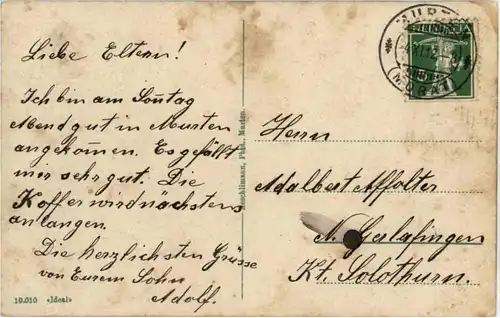 Liebe Eltern!
Ich bin am Sonntag
Abend gut in Murten
angekommen. Es gefällt
mir sehr gut. Die
Koffer wird nächstens
anlangen.
Die herzlichsten Grüsse
von Eurem Sohn
Adolf.
10.010 «Ideal»
Aeschlimann, Phot., Murten.
MURTEN
(MORAT)
Herrn
Adalbert Affolter
N. Gerlafingen
Kt. Solothurn.